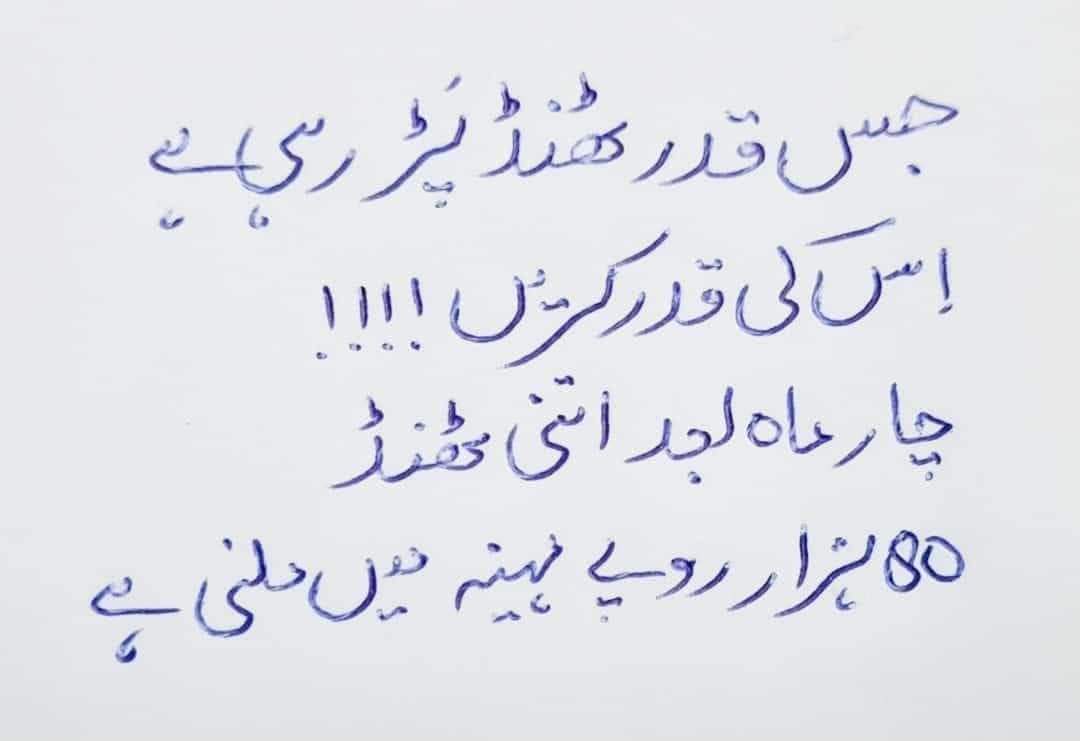 جس قدر ٹھنڈ پڑ رہی ہے
اِس کی قدر کریں !!!!
چار ماہ بعد اتنی ٹھنڈ
80 ہزار روپے مہینہ میں ملنی ہے